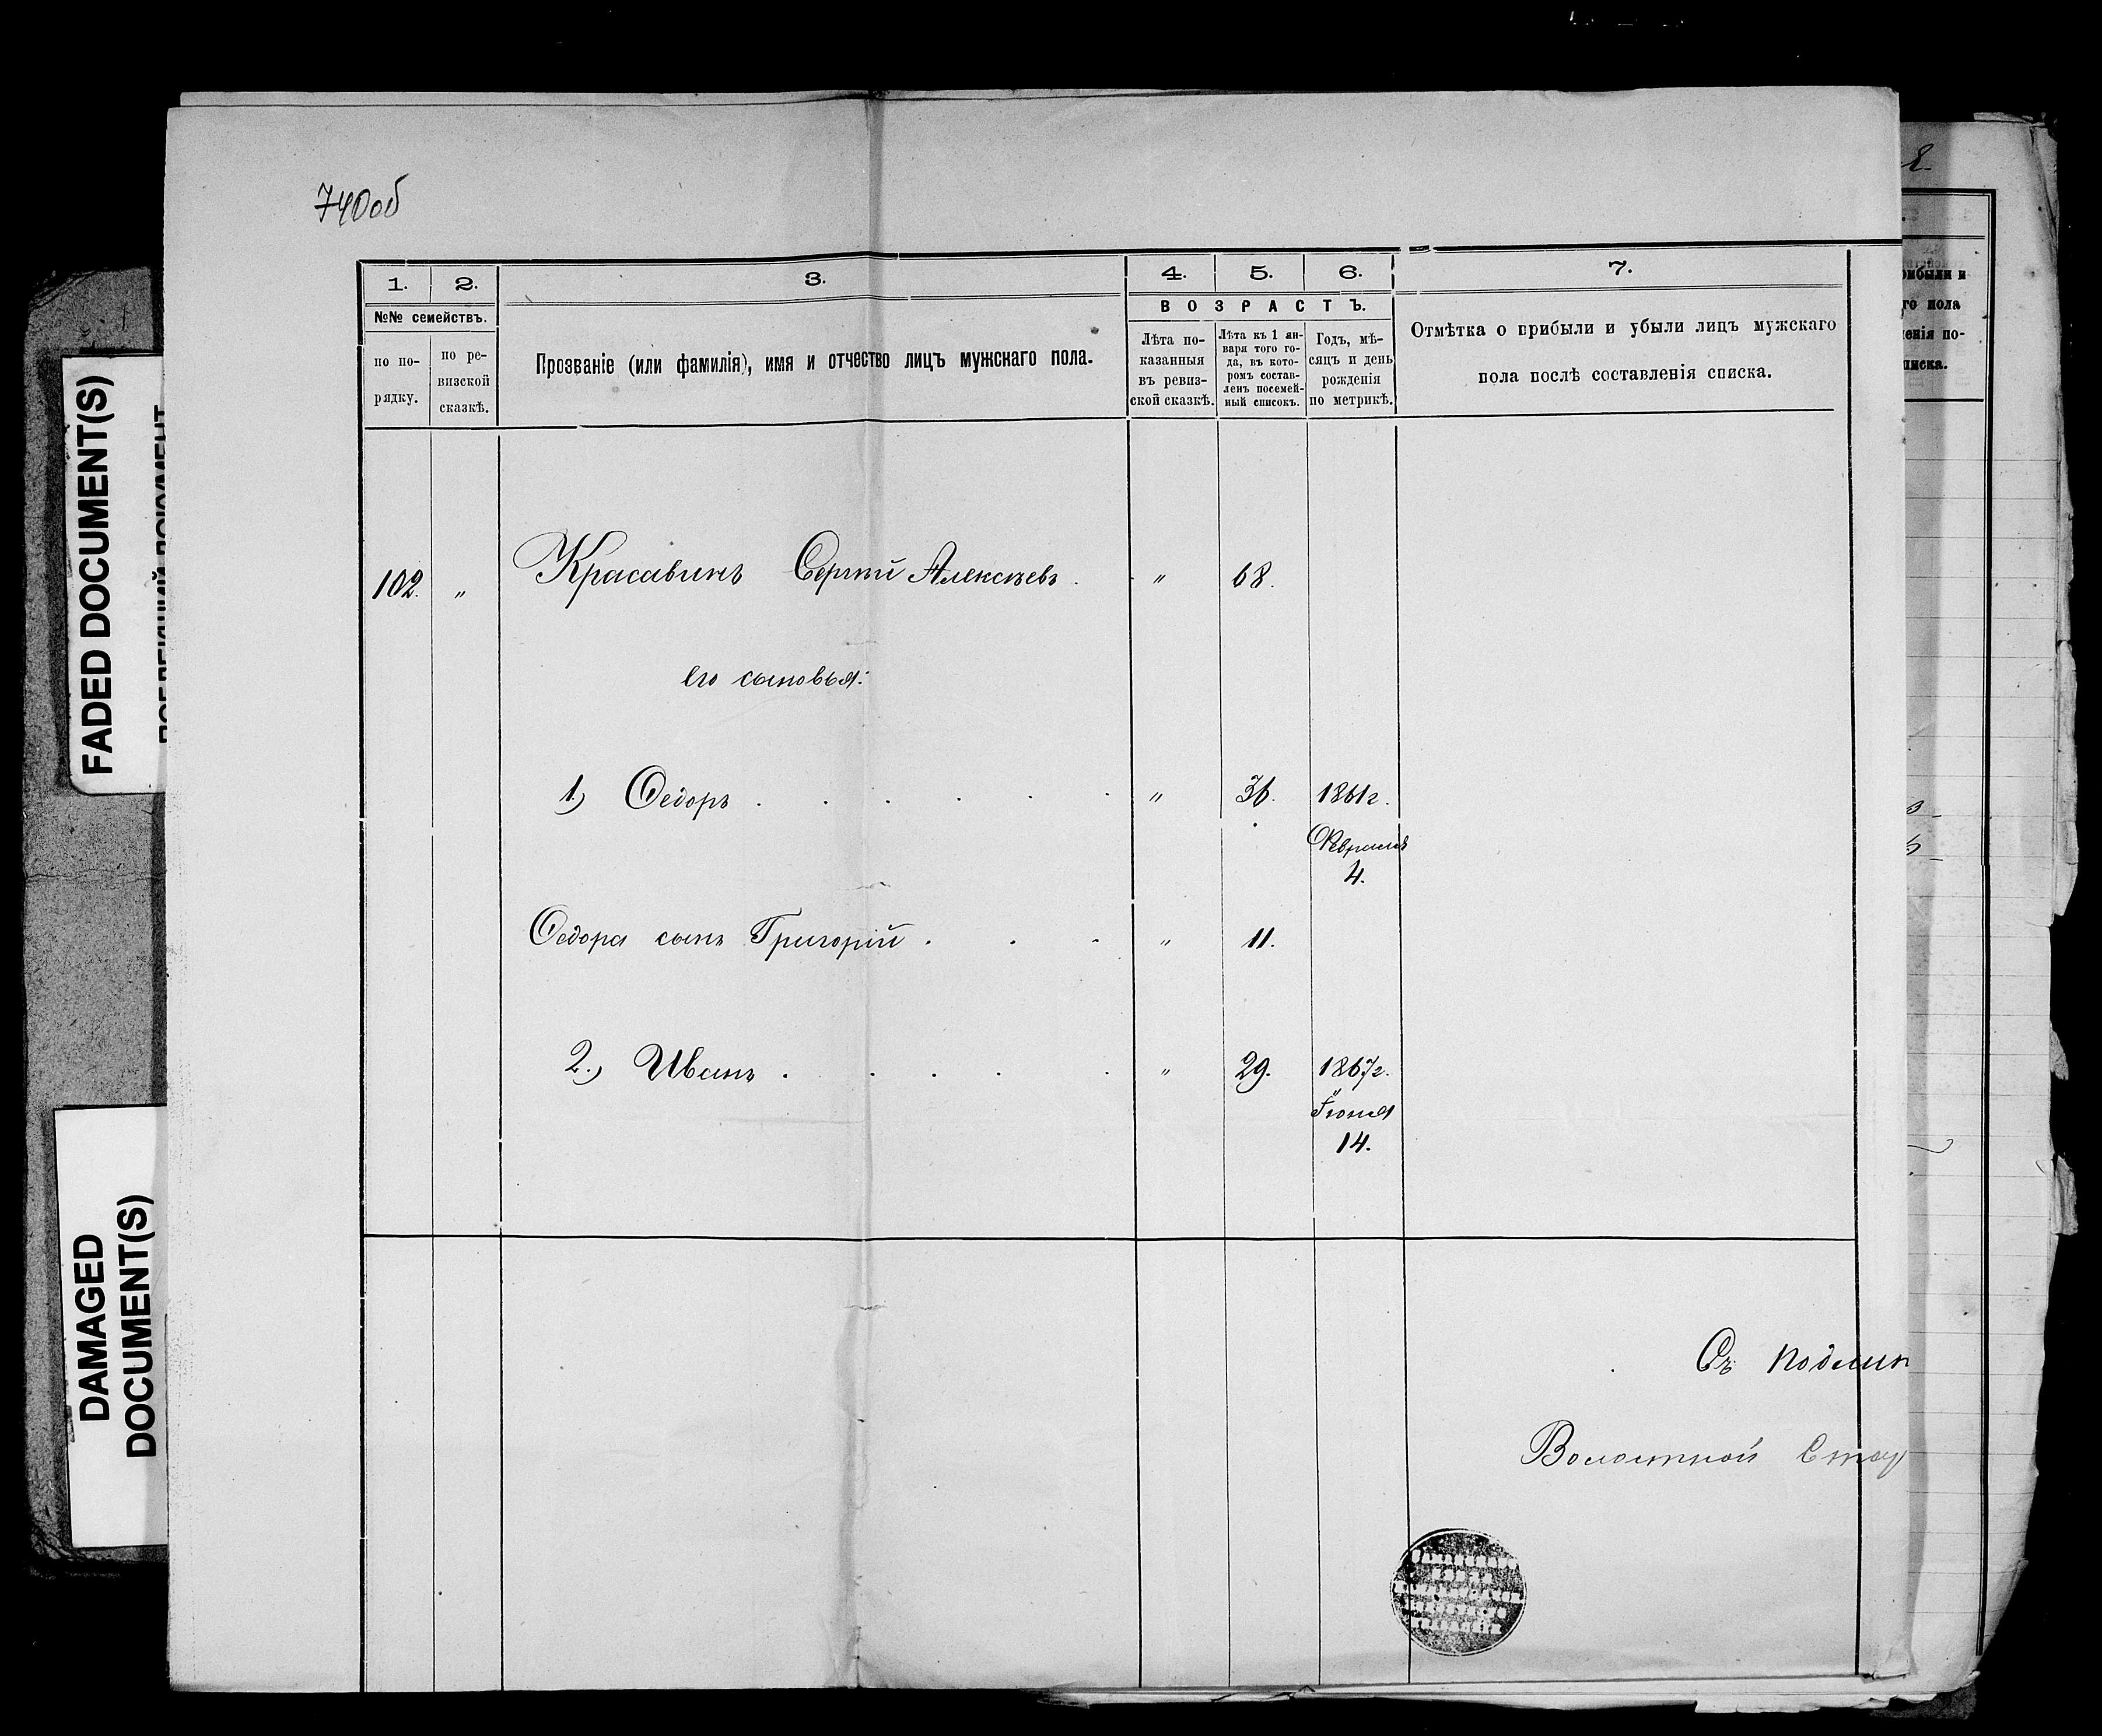 740об
1. 2. 3. 4. 5. 6. 7.
№№ семействъ.
ВОЗРАСТЪ.
по по-
рядку.
по ре-
визской
сказкѣ.
Прозваніе (или фамилія), имя и отчество лицъ мужскаго пола.
Лѣта по-
казанныя
въ ревиз-
ской сказкѣ.
Лѣта къ 1 ян-
варя того го-
да, въ кото-
ромъ состав-
ленъ посемей-
ный списокъ.
Годъ, мѣ-
сяцъ и день
рожденія
по метрикѣ.
Отмѣтка о прибыли и убыли лицъ мужскаго
пола послѣ составленія списка.
102. " Красавинъ Сергѣй Алексѣевъ. " 68.
его сыновья:
1) Ѳедоръ . . . . . . " 36. 1861г.
Февраля
4.
Ѳедора сынъ Григорій . . . " 11.
2.) Иванъ . . . . . " 29. 1867г.
Іюня
14.
Съ подлин
Волостной Стар
FADED DOCUMENT(S)
DAMAGED
DOCUMENT(S)
рибыли и
го пола
енія по-
писка.